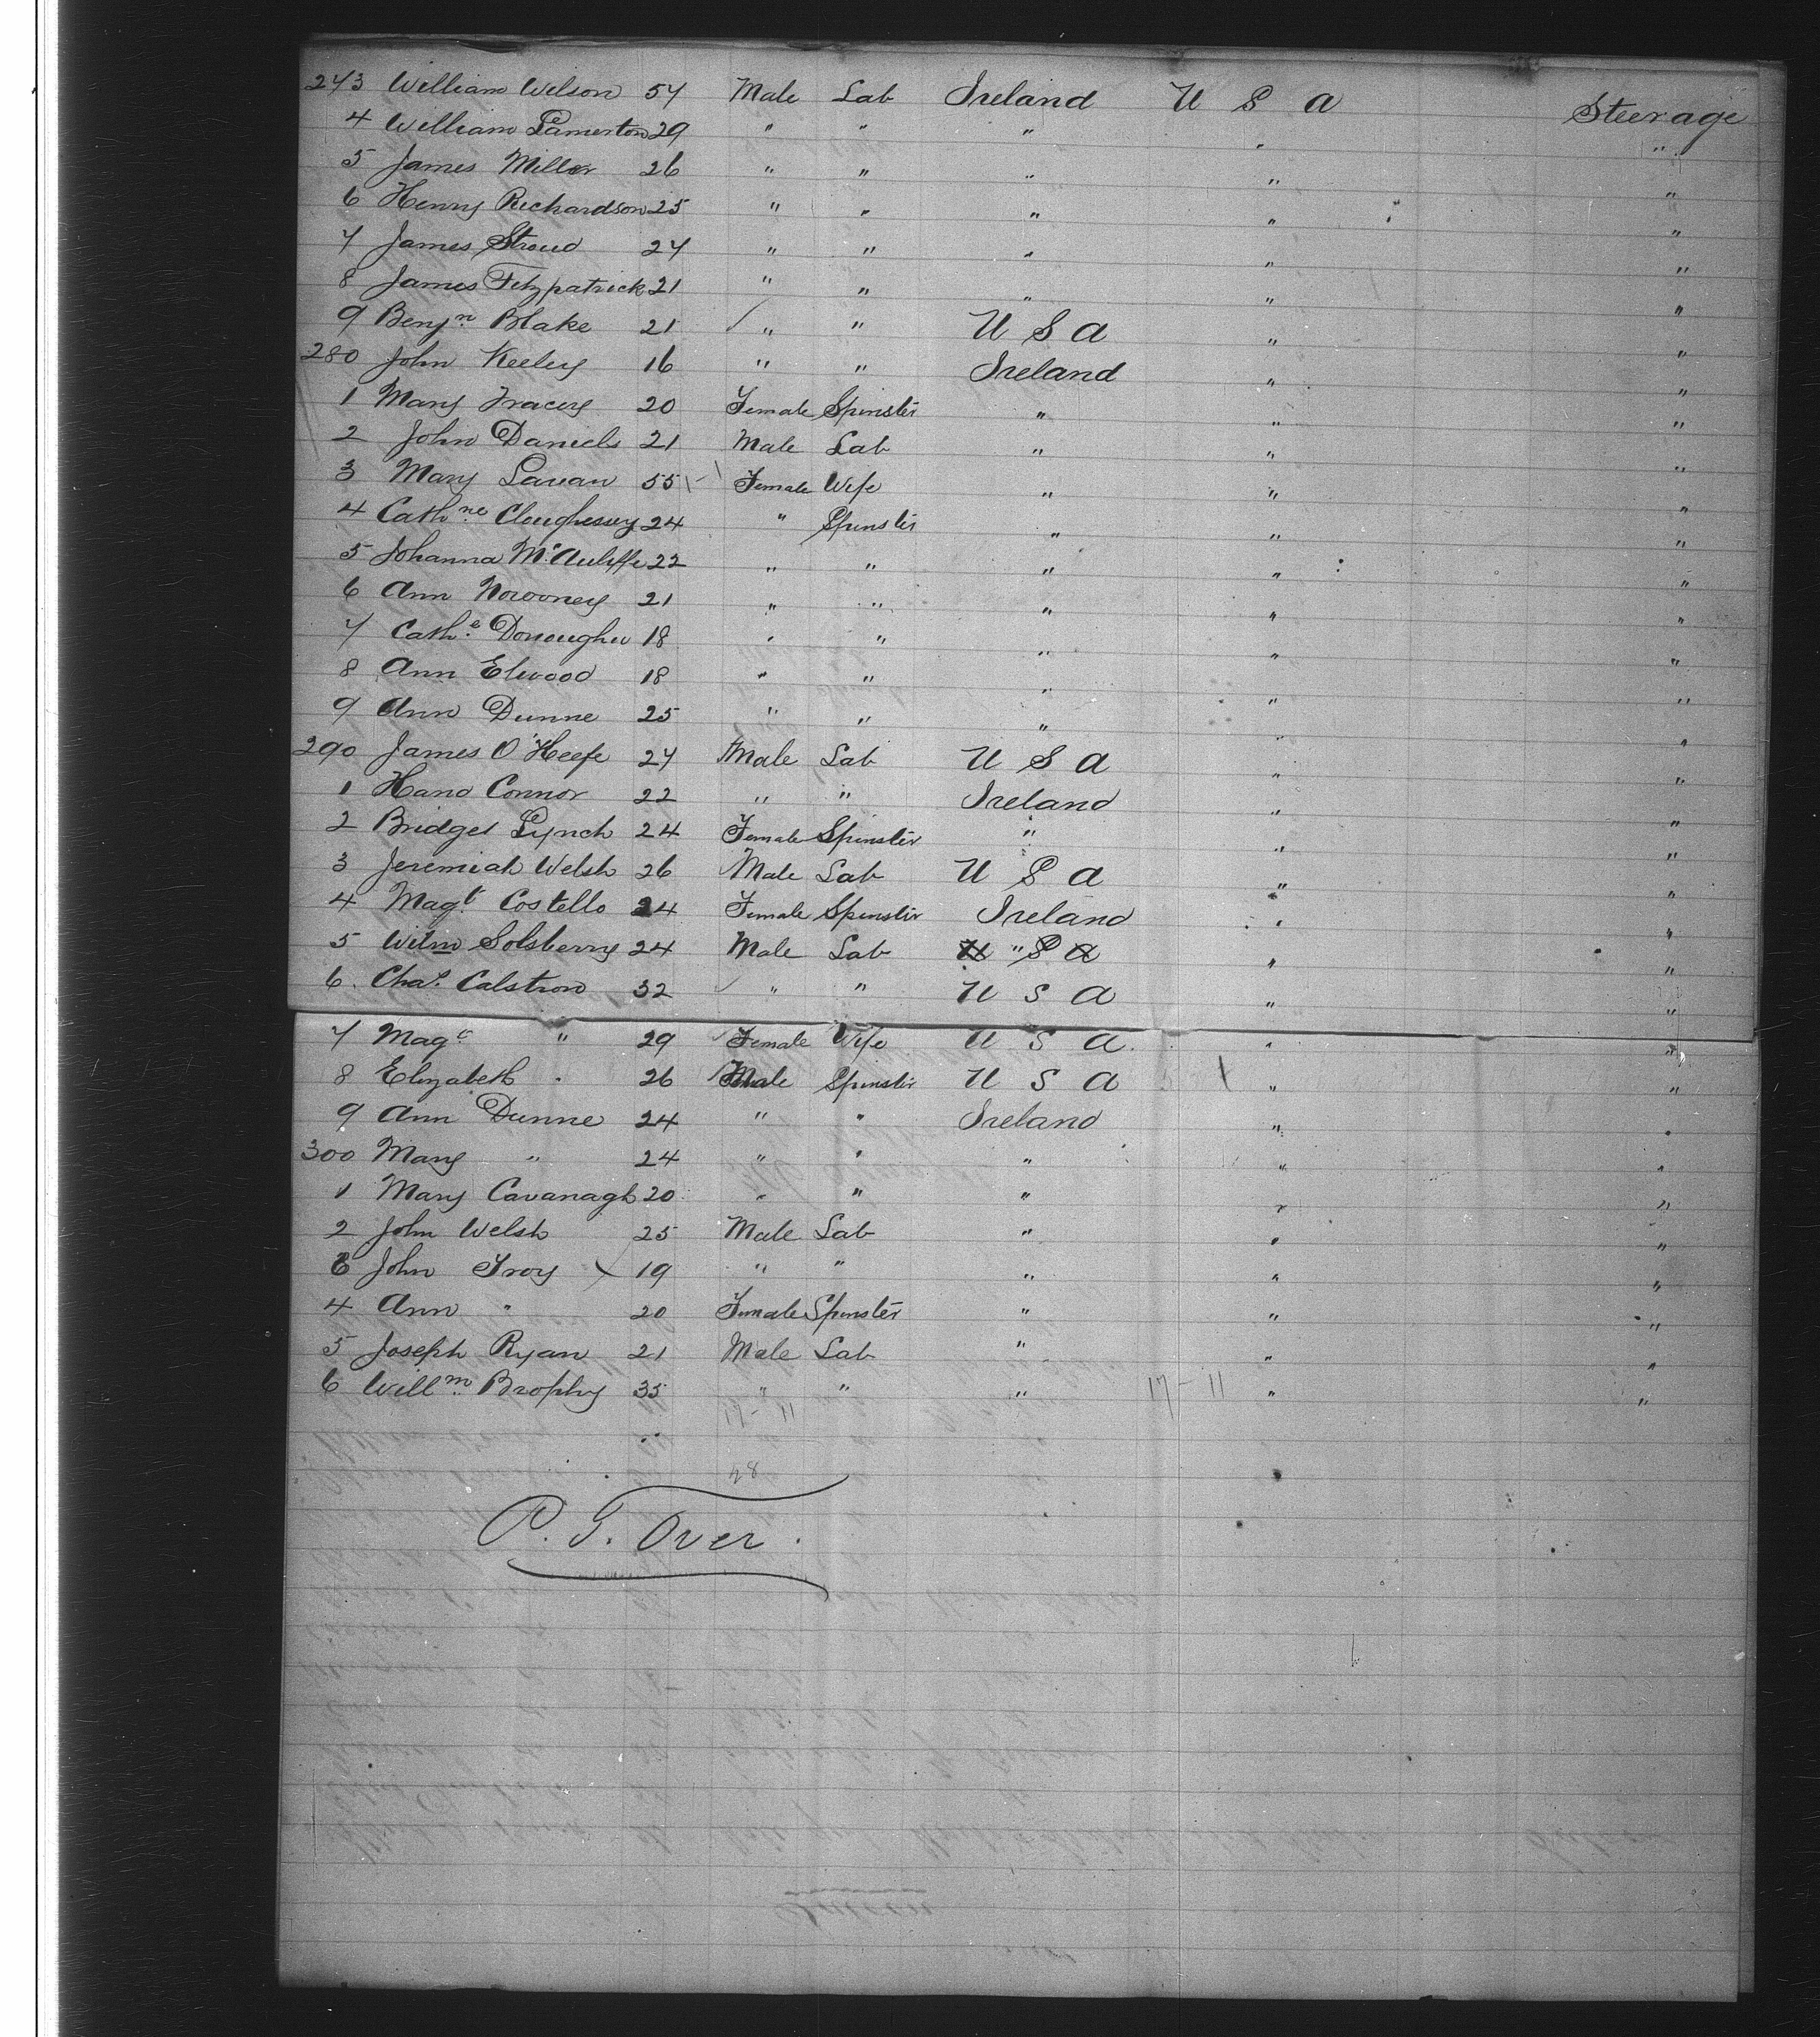 273 William Wilson 54 Male Lab Ireland U S A Steerage
4 William Lamerton 29 " " " " "
5 James Miller 26 " " " " "
6 Henry Richardson 25 " " " " "
7 James Stroud 24 " " " " "
8 James Fitzpatrick 21 " " " " "
9 Benjn. Blake 21 " " U S A " "
280 John Keeley 16 " " Ireland " "
1 Mary Tracey 20 Female Spinster " " "
2 John Daniels 21 Male Lab " " "
3 Mary Lavan 55 Female Wife " " "
4 Cathne Cloughessey 24 " Spinster " " "
5 Johanna McAuliffe 22 " " " " "
6 Ann Norooney 21 " " " " "
7 Cathe. Donoughue 18 " " " " "
8 Ann Elwood 18 " " " " "
9 Ann Dunne 25 " " " " "
290 James O'Keefe 27 Male Lab U S A " "
1 Hano Connor 22 " " Ireland " "
2 Bridget Lynch 24 Female Spinster " " "
3 Jeremiah Welsh 26 Male Lab U S A " "
4 Magt. Costello 24 Female Spinster Ireland " "
5 Wilm Solsberry 24 Male Lab U " S A " "
6. Chas. Calstron 32 " " U S A " "
7 Magt " 29 Female Wife U S A. " "
8 Elizabeth " 26 Male Spinster U S A " "
9 Ann Dunne 24 " " Ireland " "
300 Mary " 24 " " " " "
1 Mary Cavanagh 20 " " " " "
2 John Welsh 25 Male Lab " " "
3 John Troy 19 " " " " "
4 Ann " 20 Female Spinster " " "
5 Joseph Ryan 21 Male Lab " " "
6 Willm. Brophy 35 " " " 17-11 " "
17-11
28
P. T. Over.